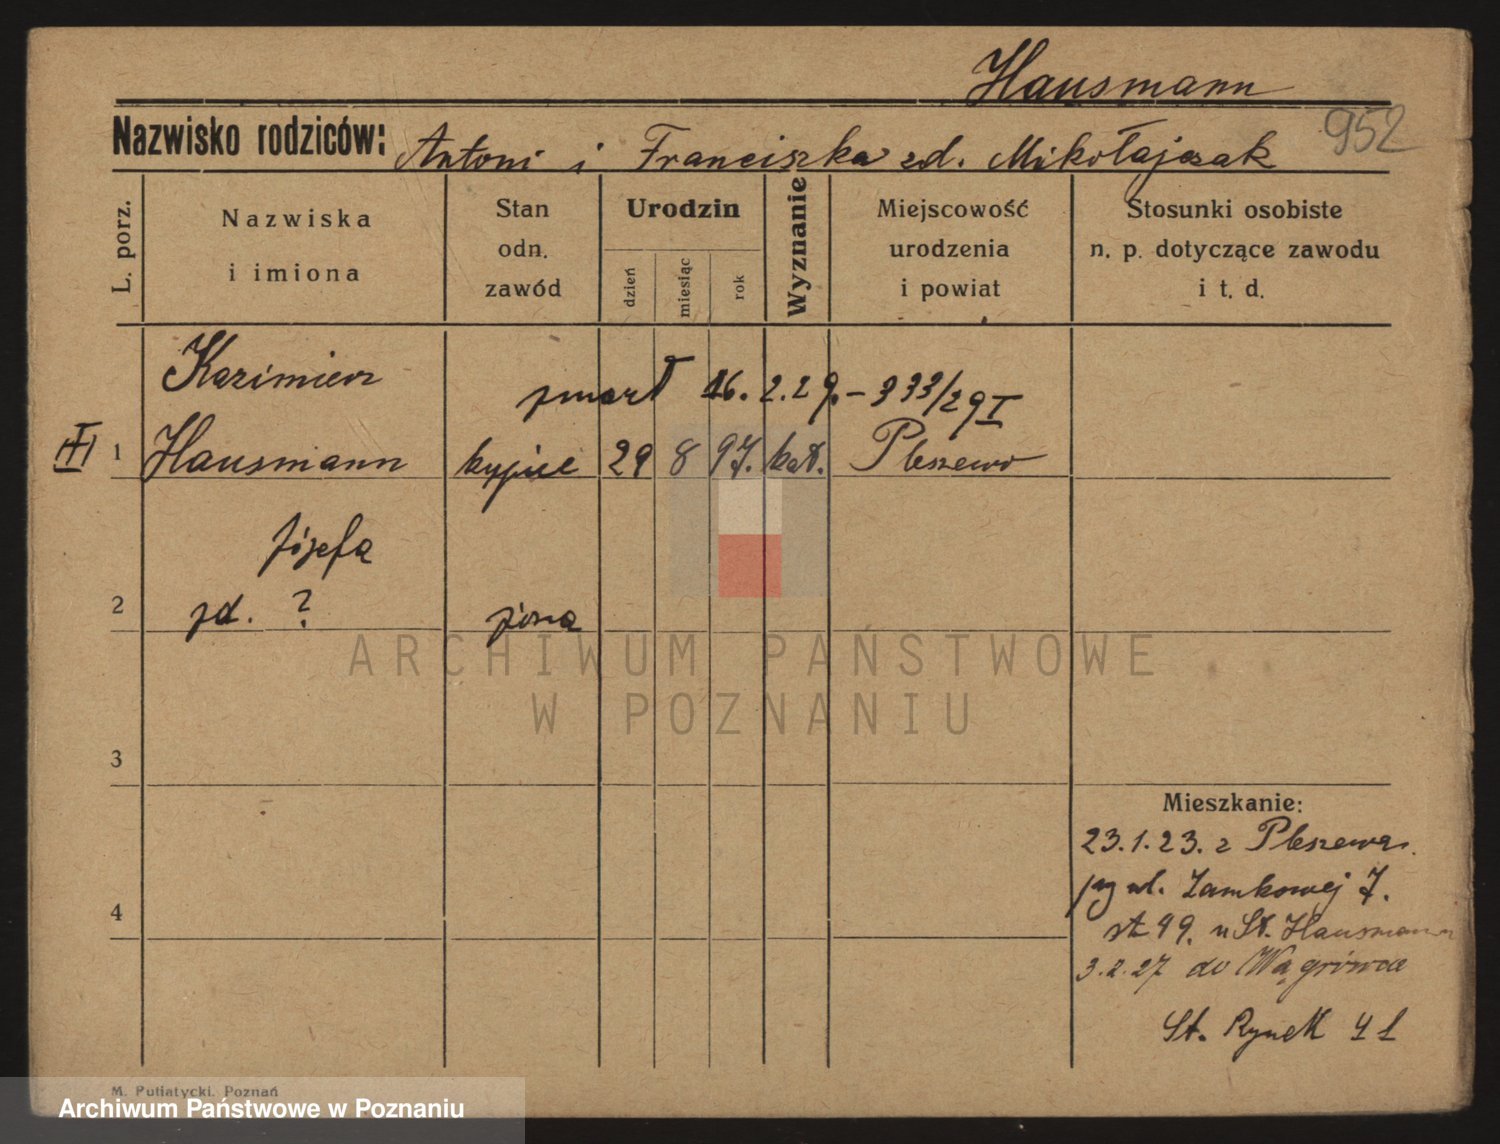 Hausmann
952
Nazwisko rodziców: Antoni i Franciszka zd. Mikołajczak
L. porz.
Nazwiska
i imiona
Stan
odn.
zawód
Urodzin
dzień
miesiąc
rok
Wyznanie
Miejscowość
urodzenia
i powiat
Stosunki osobiste
n. p. dotyczące zawodu
i t. d.
Kazimierz
zmarł 16.2.29. – 333/29 I
1 Hausmann kupiec 29 8 97. kat. Pleszewo
Józefa
2 zd. ? żona
ARCHIWUM PAŃSTWOWE
W POZNANIU
3
Mieszkanie:
23.1.23. z Pleszewa.
ul. Zamkowej 7.
4
u St. Hausmann
3.2.27 do Wągrówca
St. Rynek
M. Putiatycki. Poznań
Archiwum Państwowe w Poznaniu